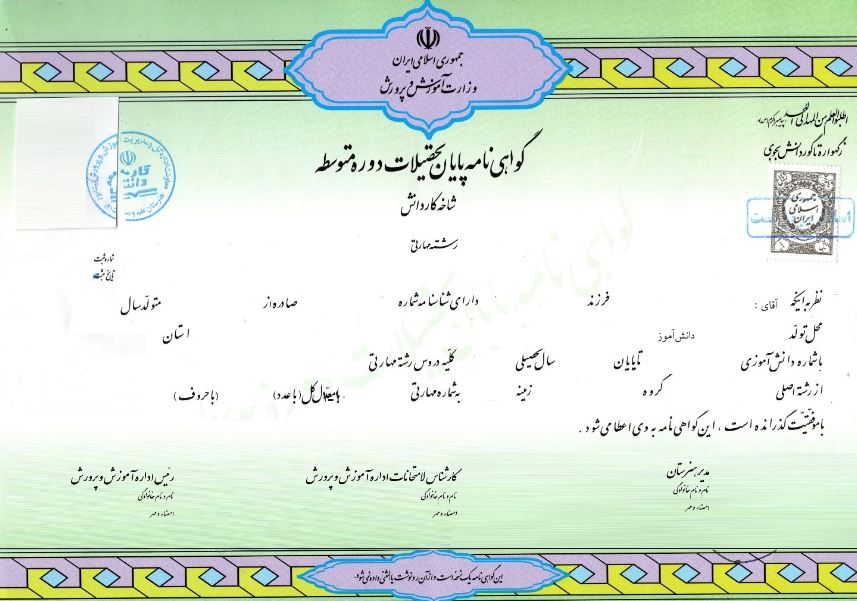 جمهوری اسلامی ایران
وزارت آموزش و پرورش
اطلبوا العلم من المهد الی اللحد
ز گهواره تا گور دانش بجوی
گواهی نامه پایان تحصیلات دوره متوسطه
شاخه کاردانش
رشته مهارتی
جمهوری اسلامی ایران
شماره ثبت
تاریخ ثبت
نظر به اینکه آقای : فرزند دارای شناسنامه شماره صادره از متولد سال
محل تولد دانش آموز استان
با شماره دانش آموزی تا پایان سال تحصیلی کلیه دروس رشته مهارتی
از رشته اصلی گروه زمینه به شماره مهارتی با معدل کل (با عدد) (با حروف)
با موفقیت گذرانده است ، این گواهی نامه به وی اعطا می شود .
مدیر هنرستان کارشناس امتحانات اداره آموزش و پرورش رئیس اداره آموزش و پرورش
نام و نام خانوادگی نام و نام خانوادگی نام و نام خانوادگی
امضاء و مهر امضاء و مهر امضاء و مهر
این گواهی نامه یک نسخه است و از آن رونوشت یا المثنی داده نمی شود.